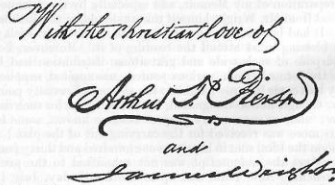 With the Christian love of
Arthur T. Pierson
and
James Wright